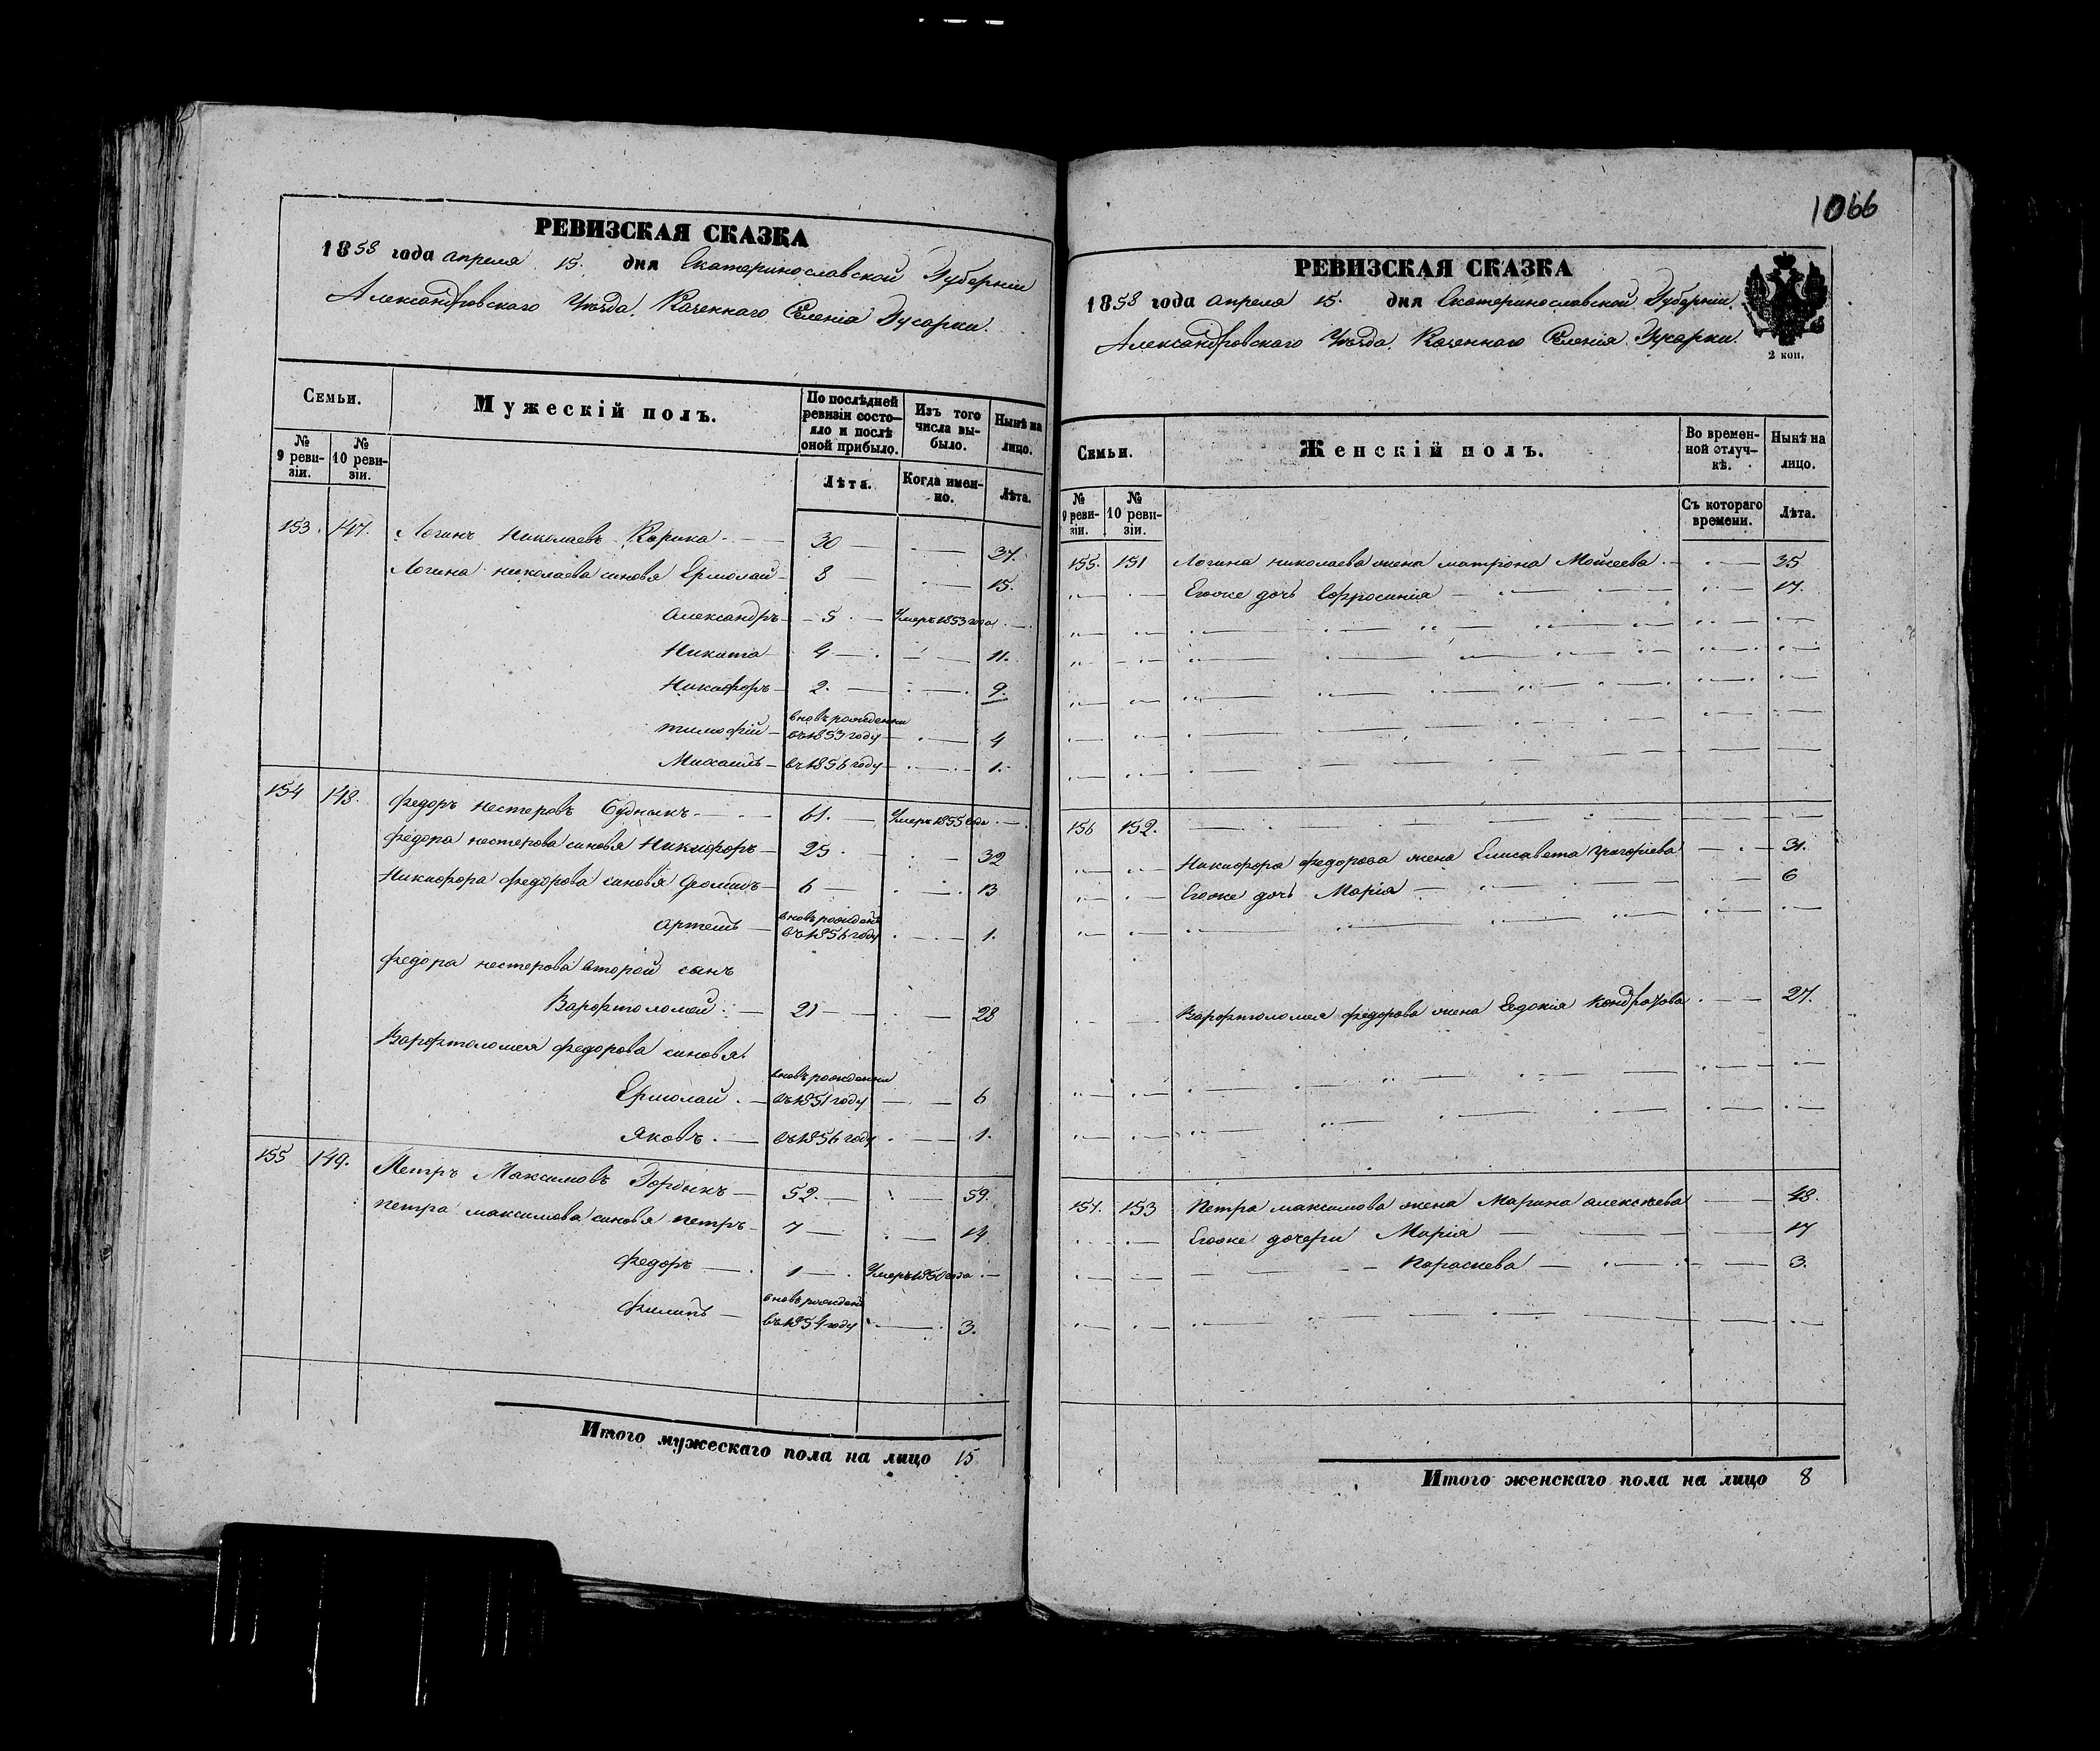 РЕВИЗСКАЯ СКАЗКА
1858 года апреля 15. дня Екатеринославской Губернии
Александровскаго Уѣзда. Казеннаго Селенія Гусарки.
Семьи.
Мужескій полъ.
По послѣдней ревизіи состояло и послѣ оной прибыло.
Изъ того числа выбыло.
Нынѣ на лицо.
№ 9 ревизіи.
№ 10 ревизіи.
Лѣта.
Когда именно.
Лѣта.
153. 147. Логинъ Николаевъ Корика 30 37.
Логина Николаева синовя Ермолай 8 15.
Александръ 5 Умеръ 1853 года
Никита 4 11.
Никифоръ 2. 9.
вновь рожденни
Тимофій въ 1853 году 4
Михаилъ въ 1856 году 1.
154 148. Федоръ Нестеровъ Будныкъ 61. Умеръ 1855 года
Федора Нестерова синовя Никифоръ 25 32
Никифора Федорова синовя 6 13
вновь рожденъ
Артемъ въ 1856 году 1.
Федора Нестерова второй сынъ
Варфтоломей 21 28
Варфтоломея Федорова синовя
вновь рожденни
Ермолай въ 1851 году 6
Яковъ въ 1856 году 1.
155 149. Петръ Максимовъ Горбикъ 52. 59.
Петра Максимова синовя Петръ 7 14
Федоръ 1 Умеръ 1850 года
вновь рожденъ
Филипъ въ 1854 году 3.
Итого мужескаго пола на лицо 15
1066
РЕВИЗСКАЯ СКАЗКА
1858 года апреля 15. дня Екатеринославской Губернии.
Александровскаго Уѣзда. Казеннаго Селенія Гусарки.
2 коп.
Семьи.
Женскій полъ.
Во временной отлучкѣ.
Нынѣ на лицо.
№ 9 ревизіи.
№ 10 ревизіи.
Съ котораго времени.
Лѣта.
155. 151 Логина Николаева жена Матрона Мойсеева 35
Егоже дочь Ефросинія 17.
156 152.
Никифора Федорова жена Елисавета Григоріева 31.
Егоже дочь Марія 6
Варфтоломея Федорова жена Евдокія Кондратова 27.
157. 153 Петра Максимова жена Марина Алексѣева 48.
Егоже дочери Марія 17
Параскева 3.
Итого женскаго пола на лицо 8